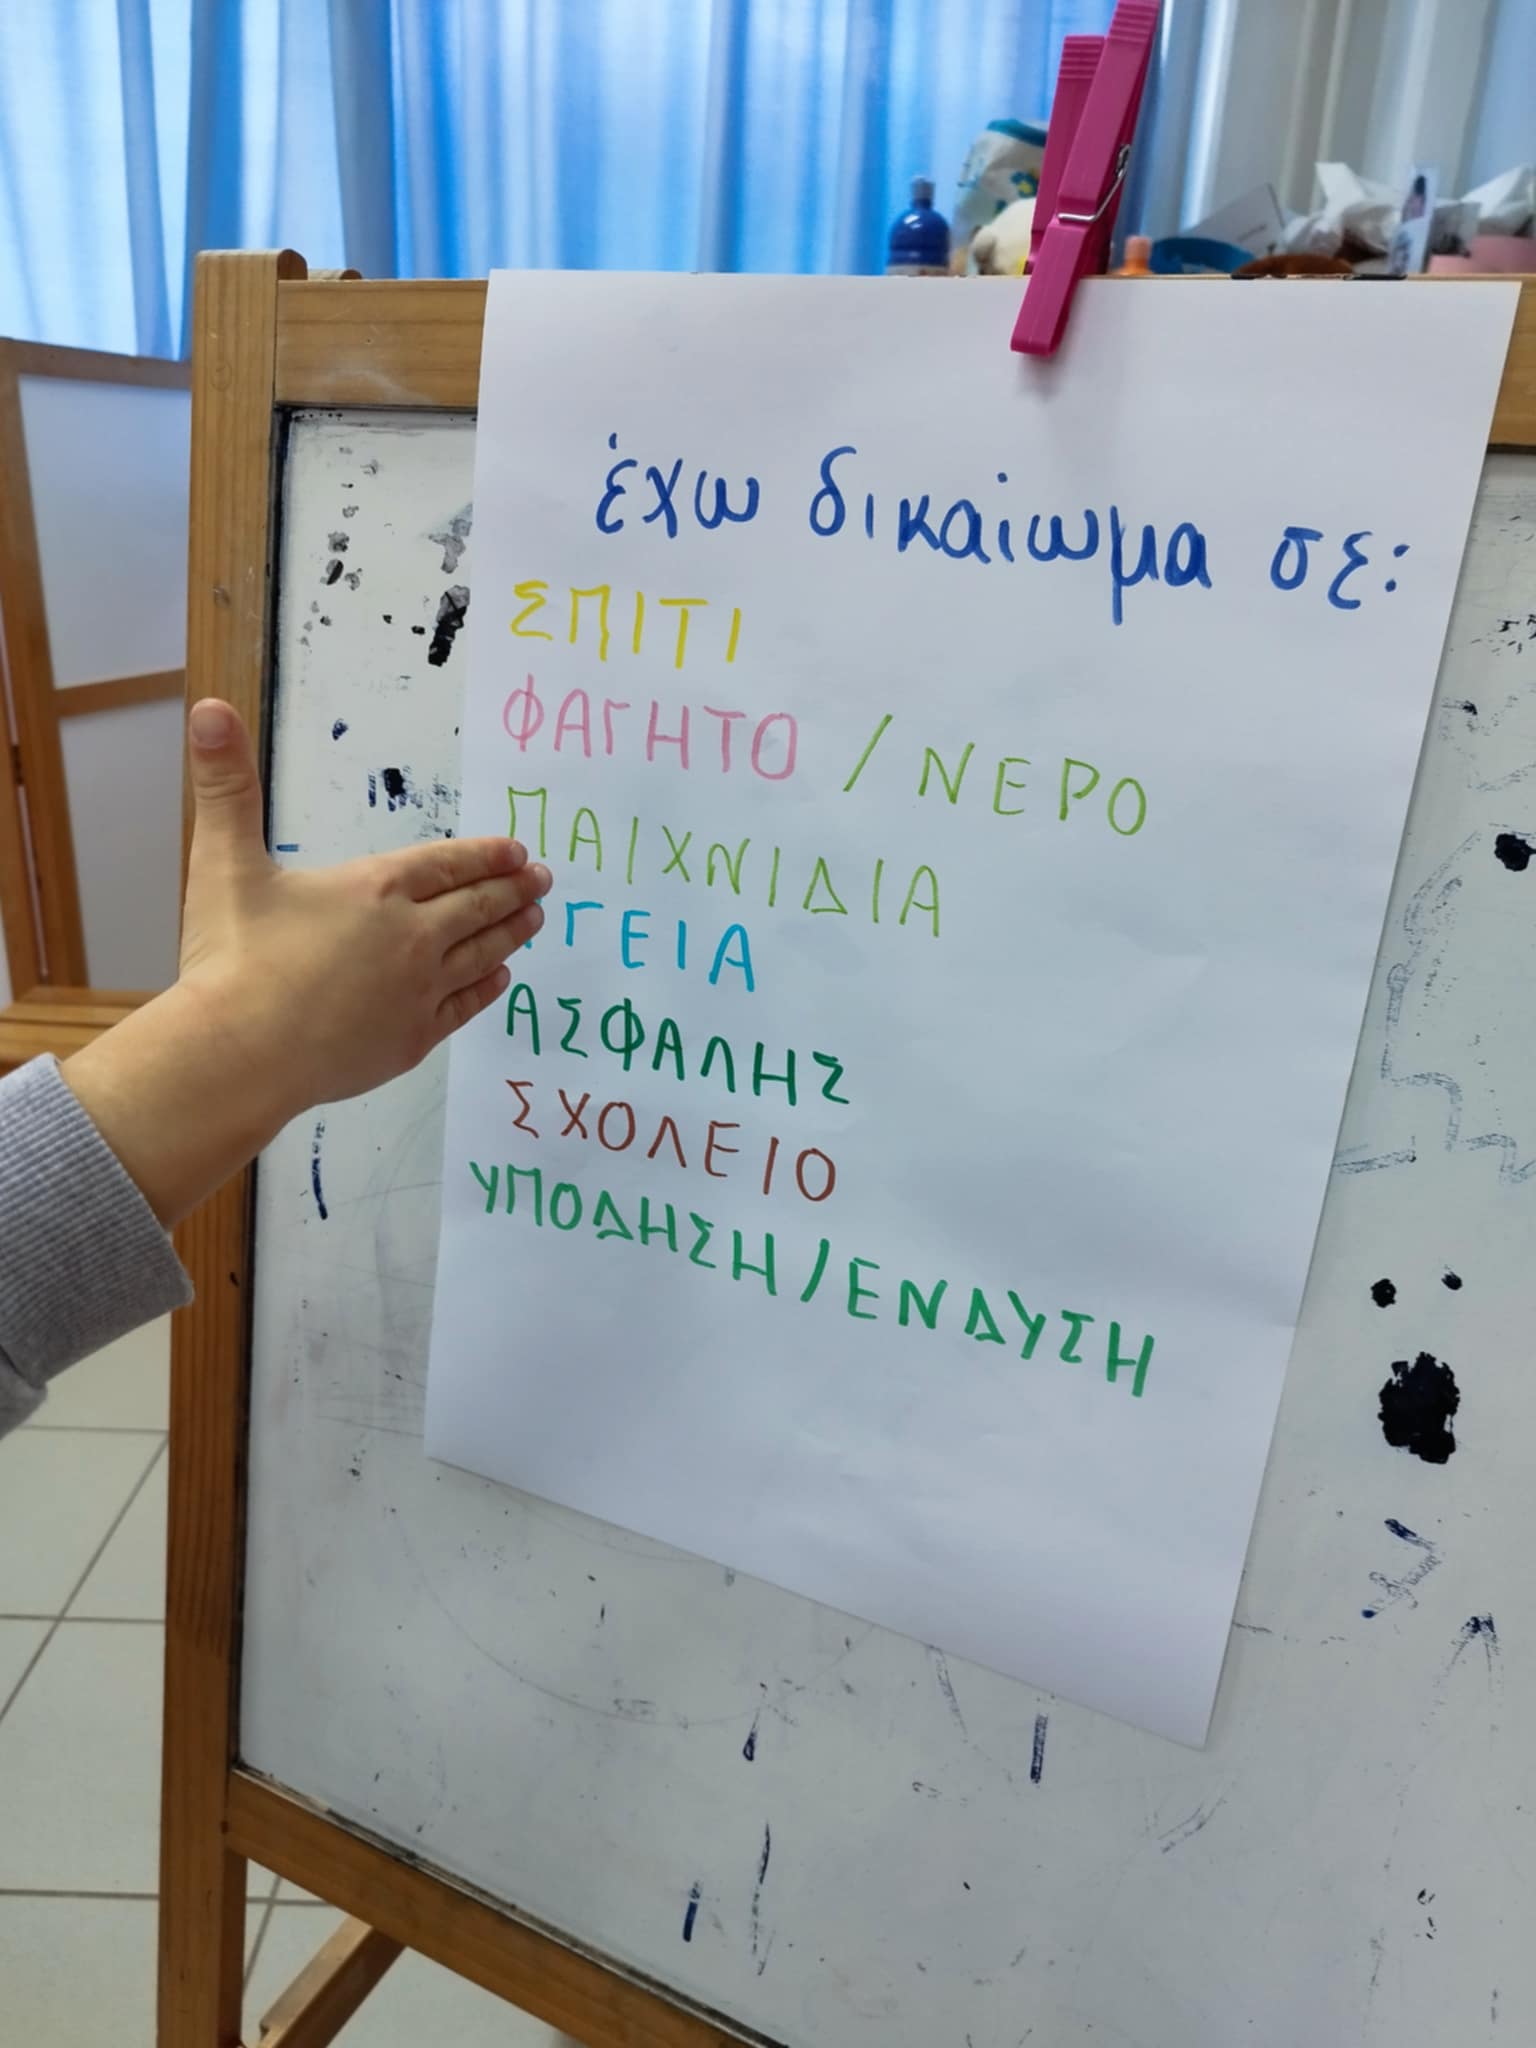 έχω δικαίωμα σε:
ΣΠΙΤΙ
ΦΑΓΗΤΟ / ΝΕΡΟ
ΠΑΙΧΝΙΔΙΑ
ΥΓΕΙΑ
ΑΣΦΑΛΗΣ
ΣΧΟΛΕΙΟ
ΥΠΟΔΗΣΗ/ΕΝΔΥΣΗ